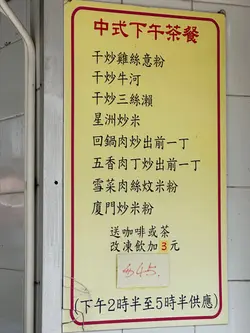 中式下午茶餐
干炒雞絲意粉
干炒牛河
干炒三絲瀨
星洲炒米
回鍋肉炒出前一丁
五香肉丁炒出前一丁
雪菜肉絲炆米粉
廈門炒米粉
送咖啡或茶
改凍飲加3元
$45
(下午2時半至5時半供應)